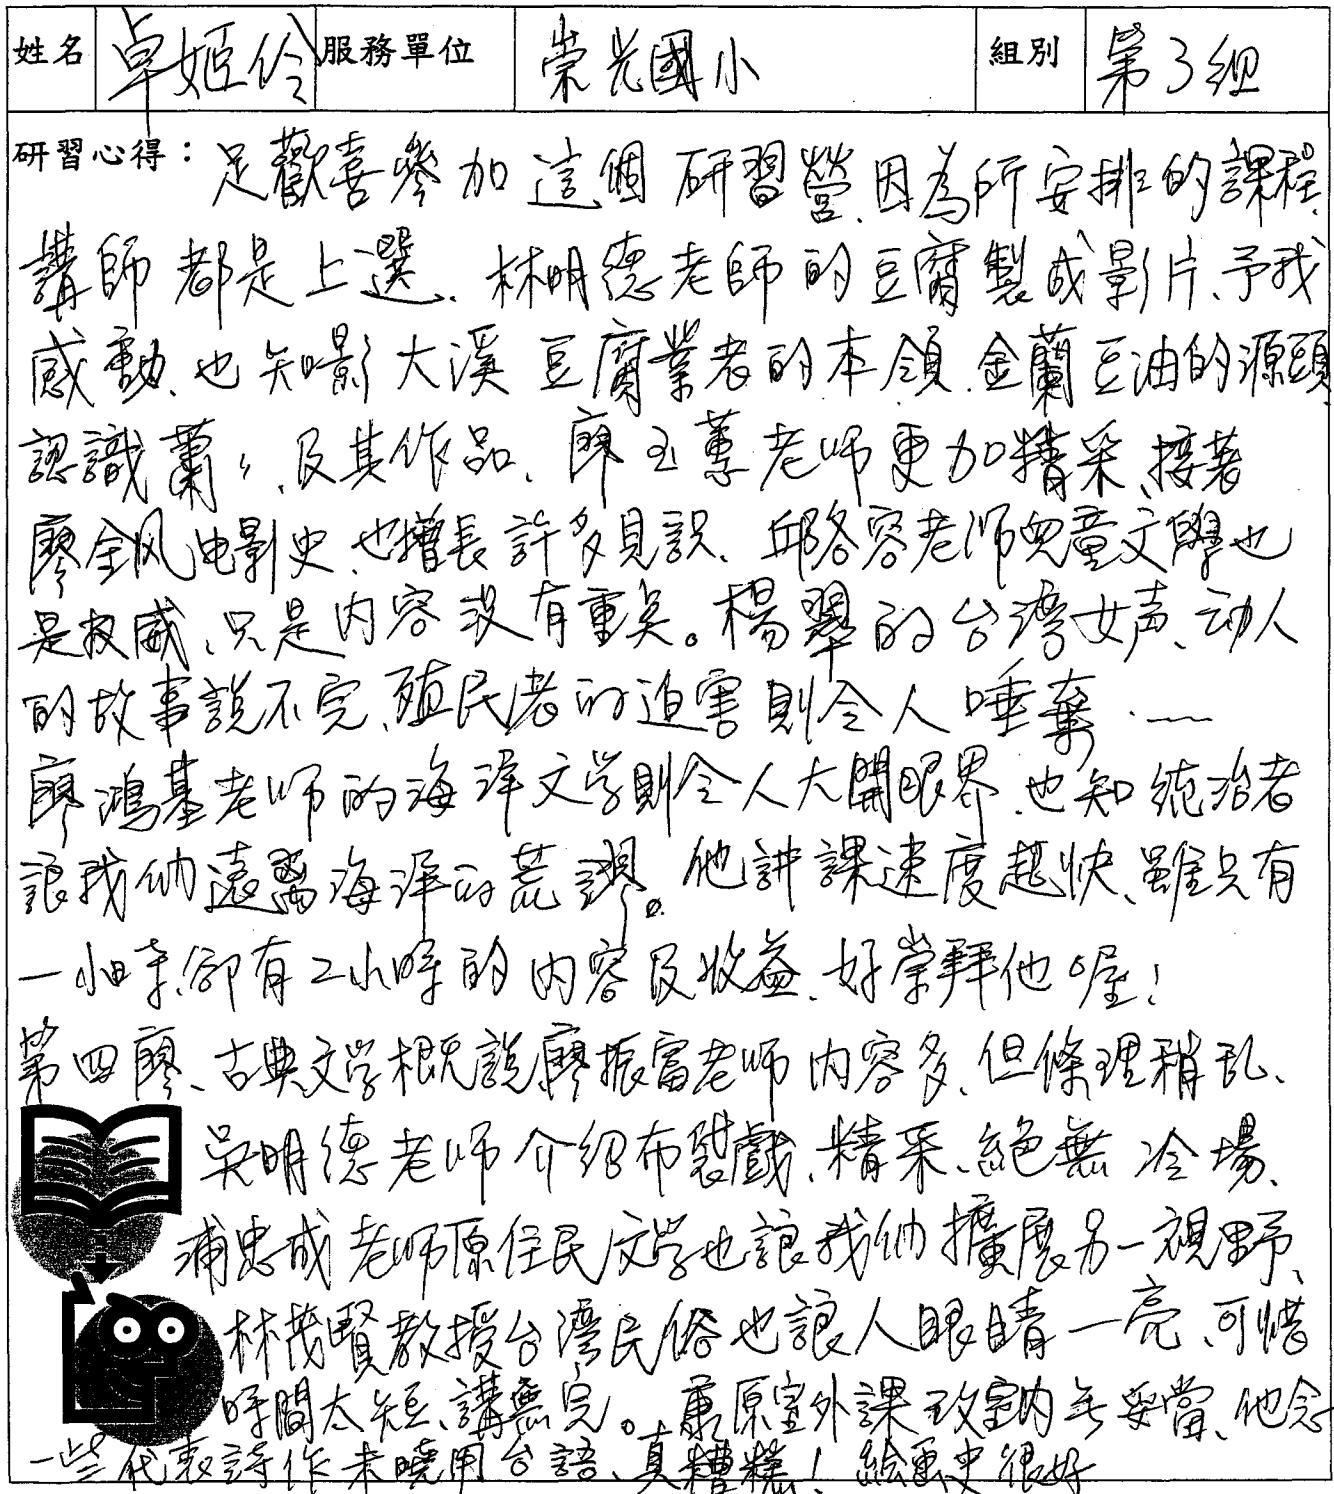 姓名 卓姬伶 服務單位 崇光國小 組別 第3組
研習心得：足歡喜參加這個研習營、因為所安排的課程、
講師都是上選、林明德老師的豆腐製成影片、予我
感動、也知影大溪豆腐業者的本領、金蘭豆油的源頭、
認識蕭蕭、及其作品、廖玉蕙老師更加精采、接著
廖金风电影史、也增長許多見識、邱各容老师兒童文學也
是权威、只是內容沒有重点。楊翠的台湾女声、动人
的故事說不完、殖民者的迫害則令人唾棄……
廖鴻基老师的海洋文学則令人大開眼界、也知統治者
讓我們遠離海洋的荒謬。他講課速度超快、雖只有
一小時、卻有2小時的內容及收益、好崇拜他喔！
第四廖、古典文学概說廖振富老师內容多、但條理稍乱、
吳明德老师介紹布袋戲、精采、絕無冷場、
浦忠成老师原住民文学也讓我們擴展另一視野、
林茂賢教授台灣民俗也讓人眼睛一亮、可惜
時間太短、講無完。康原室外課改室內無妥當、他念
一些代表詩作未曉用台語、真糟糕！繪畫史很好